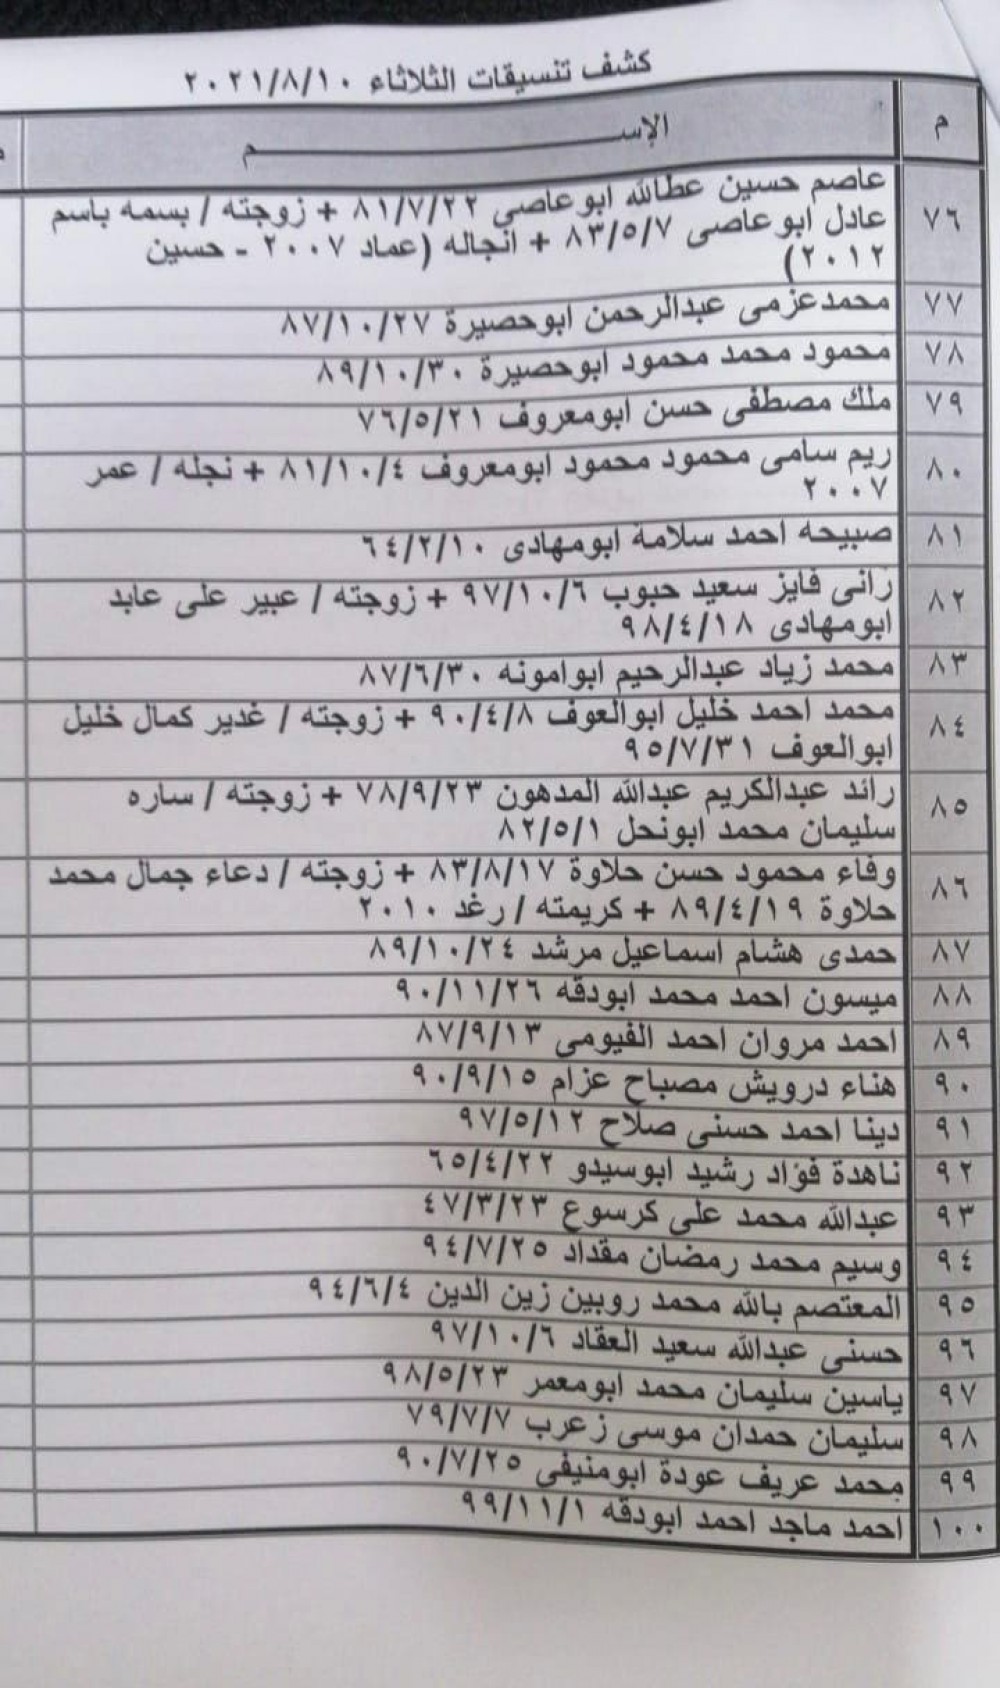 كشف تنسيقات الثلاثاء ٢٠٢١/٨/١٠
م الإســــــــم
٧٦ عاصم حسين عطالله ابوعاصي ٨١/٧/٢٢ + زوجته / بسمه باسم
عادل ابوعاصى ٨٣/٥/٧ + انجاله (عماد ٢٠٠٧ - حسين
٢٠١٢)
٧٧ محمدعزمى عبدالرحمن ابوحصيرة ٨٧/١٠/٢٧
٧٨ محمود محمد محمود ابوحصيرة ٨٩/١٠/٣٠
٧٩ ملك مصطفى حسن ابومعروف ٧٦/٥/٢١
٨٠ ريم سامى محمود محمود ابومعروف ٨١/١٠/٤ + نجله / عمر
٢٠٠٧
٨١ صبيحه احمد سلامة ابومهادى ٦٤/٢/١٠
٨٢ رانى فايز سعيد حبوب ٩٧/١٠/٦ + زوجته / عبير على عابد
ابومهادى ٩٨/٤/١٨
٨٣ محمد زياد عبدالرحيم ابوامونه ٨٧/٦/٣٠
٨٤ محمد احمد خليل ابوالعوف ٩٠/٤/٨ + زوجته / غدير كمال خليل
ابوالعوف ٩٥/٧/٣١
٨٥ رائد عبدالكريم عبدالله المدهون ٧٨/٩/٢٣ + زوجته / ساره
سليمان محمد ابونحل ٨٢/٥/١
٨٦ وفاء محمود حسن حلاوة ٨٣/٨/١٧ + زوجته / دعاء جمال محمد
حلاوة ٨٩/٤/١٩ + كريمته / رغد ٢٠١٠
٨٧ حمدى هشام اسماعيل مرشد ٨٩/١٠/٢٤
٨٨ ميسون احمد محمد ابودقه ٩٠/١١/٢٦
٨٩ احمد مروان احمد الفيومى ٨٧/٩/١٣
٩٠ هناء درويش مصباح عزام ٩٠/٩/١٥
٩١ دينا احمد حسنى صلاح ٩٧/٥/١٢
٩٢ ناهدة فؤاد رشيد ابوسيدو ٦٥/٤/٢٢
٩٣ عبدالله محمد على كرسوع ٤٧/٣/٢٣
٩٤ وسيم محمد رمضان مقداد ٩٤/٧/٢٥
٩٥ المعتصم بالله محمد روبين زين الدين ٩٤/٦/٤
٩٦ حسنى عبدالله سعيد العقاد ٩٧/١٠/٦
٩٧ ياسين سليمان محمد ابومعمر ٩٨/٥/٢٣
٩٨ سليمان حمدان موسى زعرب ٧٩/٧/٧
٩٩ محمد عريف عودة ابومنيفى ٩٠/٧/٢٥
١٠٠ احمد ماجد احمد ابودقه ٩٩/١١/١